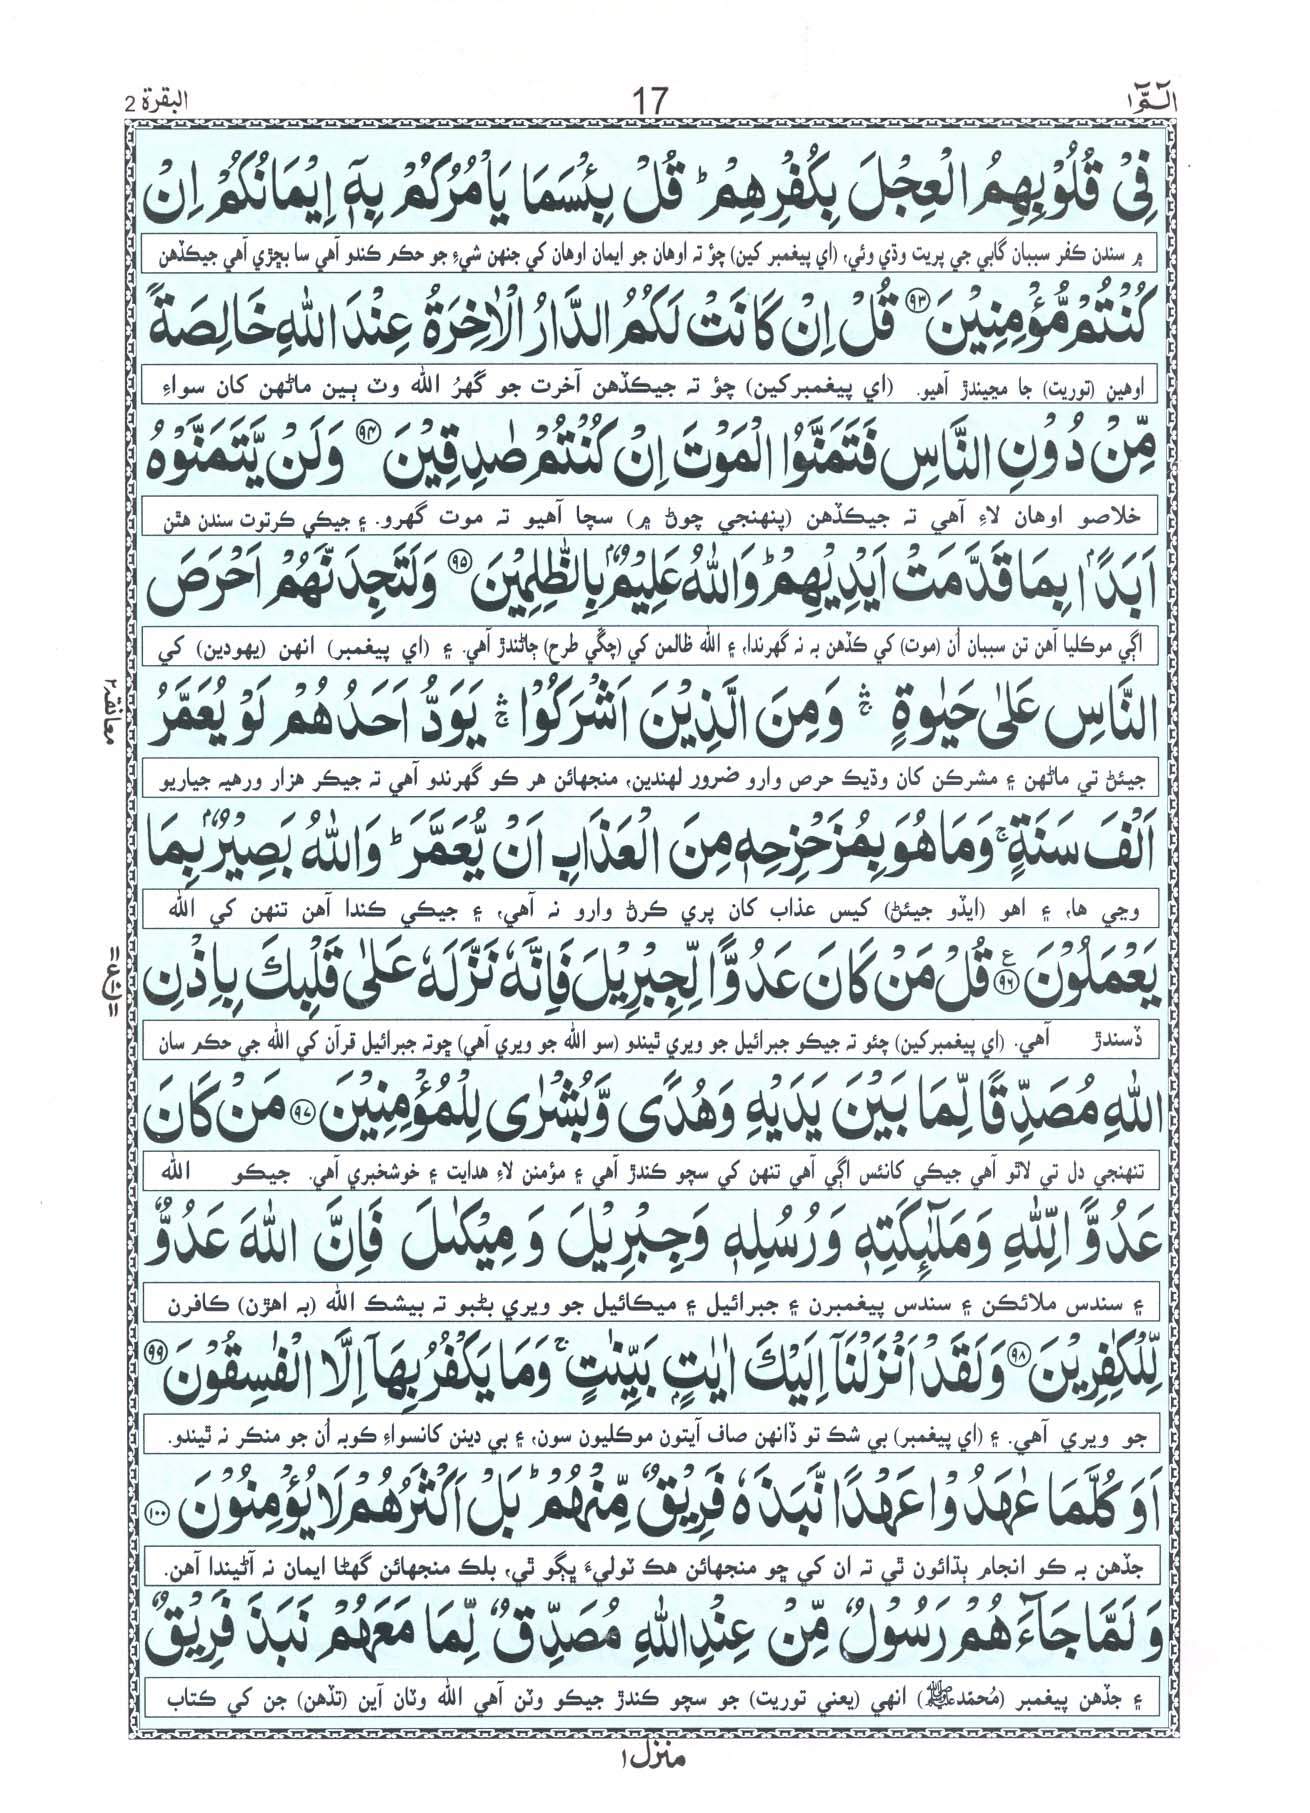 الٓـمّٓ ١
17
البقرة 2
فِيْ قُلُوْبِهِمُ الْعِجْلَ بِكُفْرِهِمْ ؕ قُلْ بِئْسَمَا يَاْمُرُكُمْ بِهٖٓ اِيْمَانُكُمْ اِنْ
۾ سندن ڪفر سببان گابي جي پريت وڌي وئي، (اي پيغمبر کين) چؤ تہ اوهان جو ايمان اوهان کي جنهن شيءِ جو حڪم ڪندو آهي سا بڇڙي آهي جيڪڏهن
كُنْتُمْ مُّؤْمِنِيْنَ ۹۳ قُلْ اِنْ كَانَتْ لَكُمُ الدَّارُ الْاٰخِرَةُ عِنْدَ اللّٰهِ خَالِصَةً
اوهين (توريت) جا مڃيندڙ آهيو. (اي پيغمبرکين) چؤ تہ جيڪڏهن آخرت جو گھرُ الله وٽ ٻين ماڻهن کان سواءِ
مِّنْ دُوْنِ النَّاسِ فَتَمَنَّوُا الْمَوْتَ اِنْ كُنْتُمْ صٰدِقِيْنَ ۹۴ وَلَنْ يَّتَمَنَّوْهُ
خلاصو اوهان لاءِ آهي تہ جيڪڏهن (پنهنجي چوڻ ۾) سچا آهيو تہ موت گهرو. ۽ جيڪي ڪرتوت سندن هٿن
اَبَدًاۢ بِمَا قَدَّمَتْ اَيْدِيْهِمْ ؕ وَاللّٰهُ عَلِيْمٌۢ بِالظّٰلِمِيْنَ ۹۵ وَلَتَجِدَنَّهُمْ اَحْرَصَ
اڳي موڪليا آهن تن سببان اُن (موت) کي ڪڏهن بہ نہ گهرندا، ۽ الله ظالمن کي (چڱي طرح) ڄاڻندڙ آهي. ۽ (اي پيغمبر) انهن (يهودين) کي
النَّاسِ عَلٰى حَيٰوةٍ ۛۚ وَمِنَ الَّذِيْنَ اَشْرَكُوْا ۛۚ يَوَدُّ اَحَدُهُمْ لَوْ يُعَمَّرُ
معانقہ ٢
جيئڻ تي ماڻهن ۽ مشرڪن کان وڌيڪ حرص وارو ضرور لهندين، منجهائن هر ڪو گهرندو آهي تہ جيڪر هزار ورهيہ جياريو
اَلْفَ سَنَةٍ ۚ وَمَا هُوَ بِمُزَحْزِحِهٖ مِنَ الْعَذَابِ اَنْ يُّعَمَّرَ ؕ وَاللّٰهُ بَصِيْرٌۢ بِمَا
وڃي ها، ۽ اهو (ايڏو جيئڻ) کيس عذاب کان پري ڪرڻ وارو نہ آهي، ۽ جيڪي ڪندا آهن تنهن کي الله
يَعْمَلُوْنَ ۹۶ قُلْ مَنْ كَانَ عَدُوًّا لِّجِبْرِيْلَ فَاِنَّهٗ نَزَّلَهٗ عَلٰى قَلْبِكَ بِاِذْنِ
ڏسندڙ آهي. (اي پيغمبرکين) چئو تہ جيڪو جبرائيل جو ويري ٿيندو (سو الله جو ويري آهي) ڇوتہ جبرائيل قرآن کي الله جي حڪم سان
اللّٰهِ مُصَدِّقًا لِّمَا بَيْنَ يَدَيْهِ وَهُدًى وَّبُشْرٰى لِلْمُؤْمِنِيْنَ ۹۷ مَنْ كَانَ
تنهنجي دل تي لاٿو آهي جيڪي کانئس اڳي آهي تنهن کي سچو ڪندڙ آهي ۽ مؤمنن لاءِ هدايت ۽ خوشخبري آهي. جيڪو الله
عَدُوًّا لِّلّٰهِ وَمَلٰٓئِكَتِهٖ وَرُسُلِهٖ وَجِبْرِيْلَ وَمِيْكٰىلَ فَاِنَّ اللّٰهَ عَدُوٌّ
۽ سندس ملائڪن ۽ سندس پيغمبرن ۽ جبرائيل ۽ ميڪائيل جو ويري بڻبو تہ بيشڪ الله (بہ اهڙن) ڪافرن
لِّلْكٰفِرِيْنَ ۹۸ وَلَقَدْ اَنْزَلْنَآ اِلَيْكَ اٰيٰتٍۭ بَيِّنٰتٍ ۚ وَمَا يَكْفُرُ بِهَآ اِلَّا الْفٰسِقُوْنَ ۹۹
جو ويري آهي. ۽ (اي پيغمبر) بي شڪ تو ڏانهن صاف آيتون موڪليون سون، ۽ بي دينن کانسواءِ ڪوبہ اُن جو منڪر نہ ٿيندو.
اَوَكُلَّمَا عٰهَدُوْا عَهْدًا نَّبَذَهٗ فَرِيْقٌ مِّنْهُمْ ؕ بَلْ اَكْثَرُهُمْ لَا يُؤْمِنُوْنَ ۱۰۰
جڏهن بہ ڪو انجام ٻڌائون ٿي تہ ان کي ڇو منجهائن هڪ ٽوليءَ ڀڳو ٿي، بلڪ منجهائن گهڻا ايمان نہ آڻيندا آهن.
وَلَمَّا جَآءَهُمْ رَسُوْلٌ مِّنْ عِنْدِ اللّٰهِ مُصَدِّقٌ لِّمَا مَعَهُمْ نَبَذَ فَرِيْقٌ
۽ جڏهن پيغمبر (مُحمّد ﷺ) انهي (يعني توريت) جو سچو ڪندڙ جيڪو وٽن آهي الله وٽان آين (تڏهن) جن کي ڪتاب
منزل ١